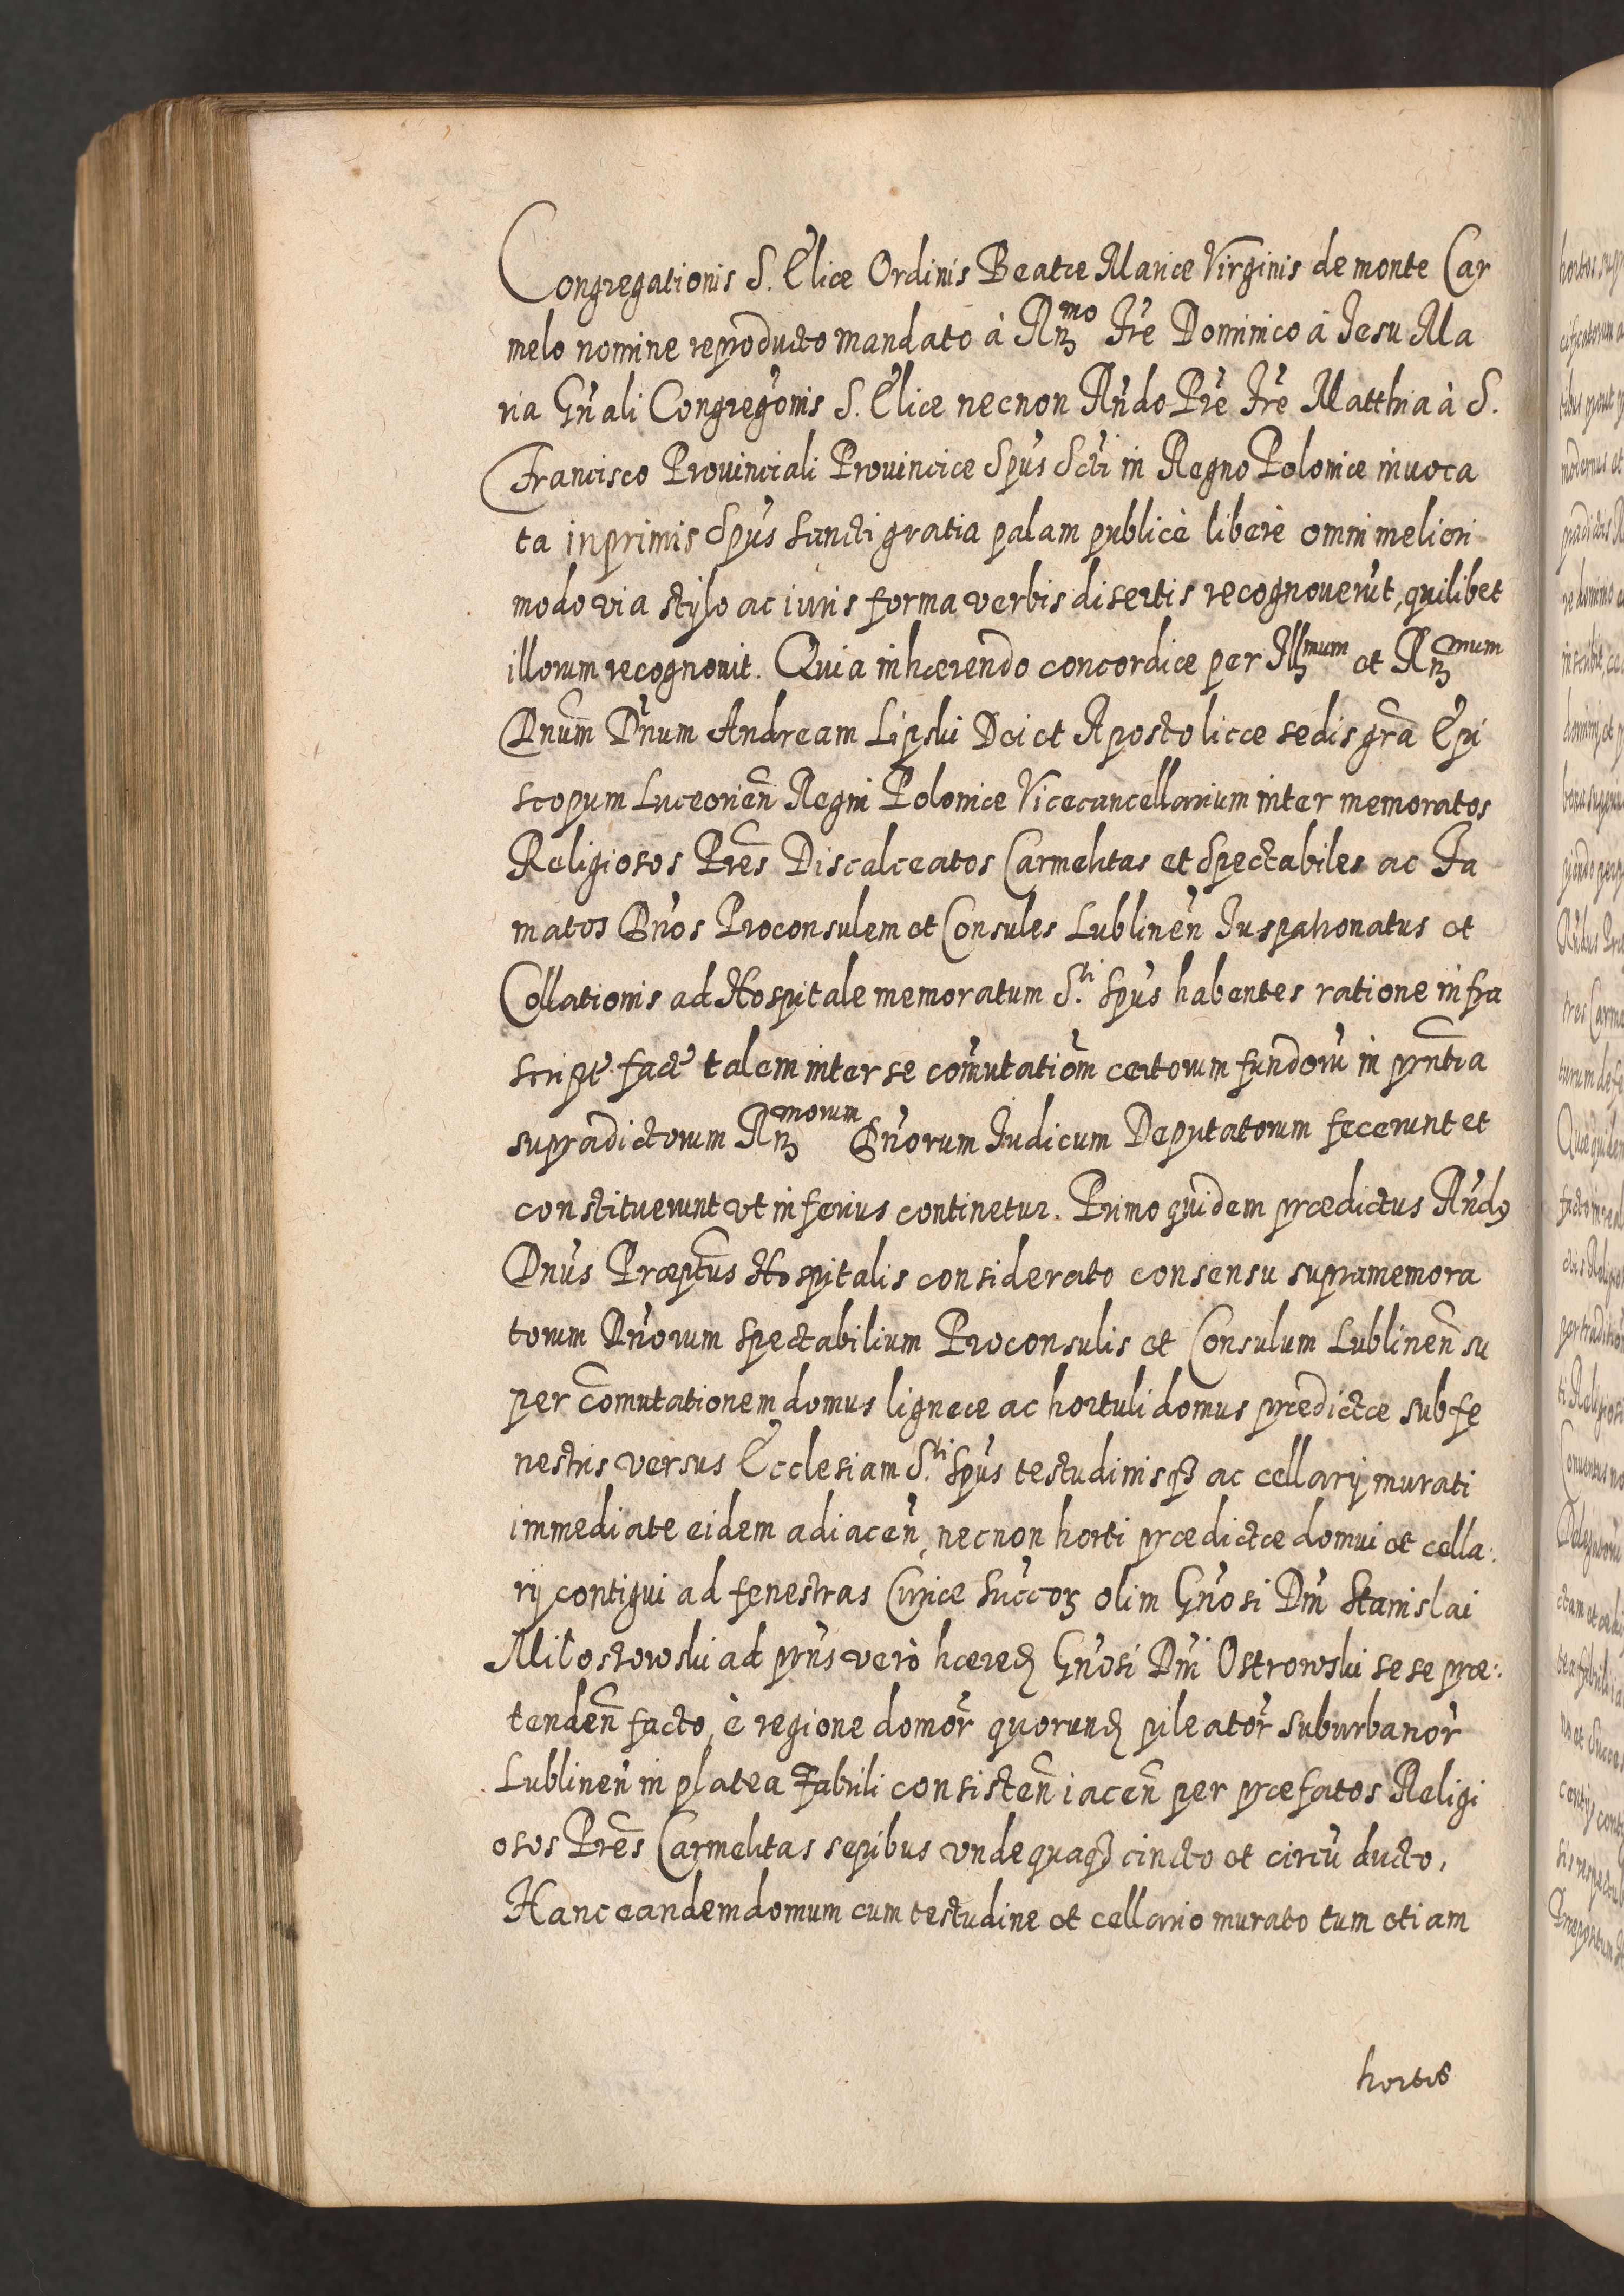 Congregationis S. Eliæ Ordinis Beatæ Mariæ Virginis de monte Car
melo nomine reproducto mandato à Rꝫmo Fre Dominico à Iesu Ma
ria Gnali Congregonis S. Eliæ necnon Rndo Pre Fre Matthia à S.
Francisco Prouinciali Prouinciæ Spus Scti in Regno Poloniæ inuoca
ta inprimis Spus Sancti gratia palam publicè liberè omni meliori
modo via stylo ac iuris forma verbis disertis recognouerut, quilibet
illorum recognouit. Quia inhærendo concordiæ per Illꝫmum et Rꝫmum
Dnum Dnum Andream Lipski Dei et Apostolicæ sedis gra Epi
scopum Luceorien Regni Poloniæ Vicecancellarium inter memoratos
Religiosos Pres Discalceatos Carmelitas et Spectabiles ac Fa
matos Dnos Proconsulem et Consules Lublinen Iuspatronatus et
Collationis ad Hospitale memoratum S.ti Spus habentes ratione infra
script fact talem inter se comutatiom certorum fundoru in prntia
supradictorum Rꝫmorum Dnorum Iudicum Deputatorum fecerunt et
constituerunt vt inferius continetur. Primo quidem prædictus Rndꝰ
Dnus Præptus Hospitalis considerato consensu supramemora
torum Dnorum Spectabilium Proconsulis et Consulum Lublinen su
per comutationem domus ligneæ ac hortuli domus prædictæ sub fe
nestris versus Ecclesiam S.ti Spus testudinisqꝫ ac cellarij murati
immediate eidem adiacen, necnon horti prædictæ domui et cella:
rij contigui ad fenestras Curiæ Succoꝫ olim Gnosi Dni Stanislai
Milostowski ad prns verò hæredꝫ Gnosi Dni Ostrowski sese præ:
tenden facto, è regione domor quorundꝫ pileator suburbanor
Lublinen in platea Fabrili consisten iacen per præfatos Religi
osos Pres Carmelitas sepibus vndequaqꝫ cincto et circu ducto.
Hanc eandem domum cum testudine et cellario murato tum etiam
hortos